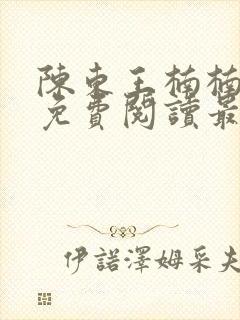 陳東王楠楠
免費閱讀最
伊諾澤姆采夫